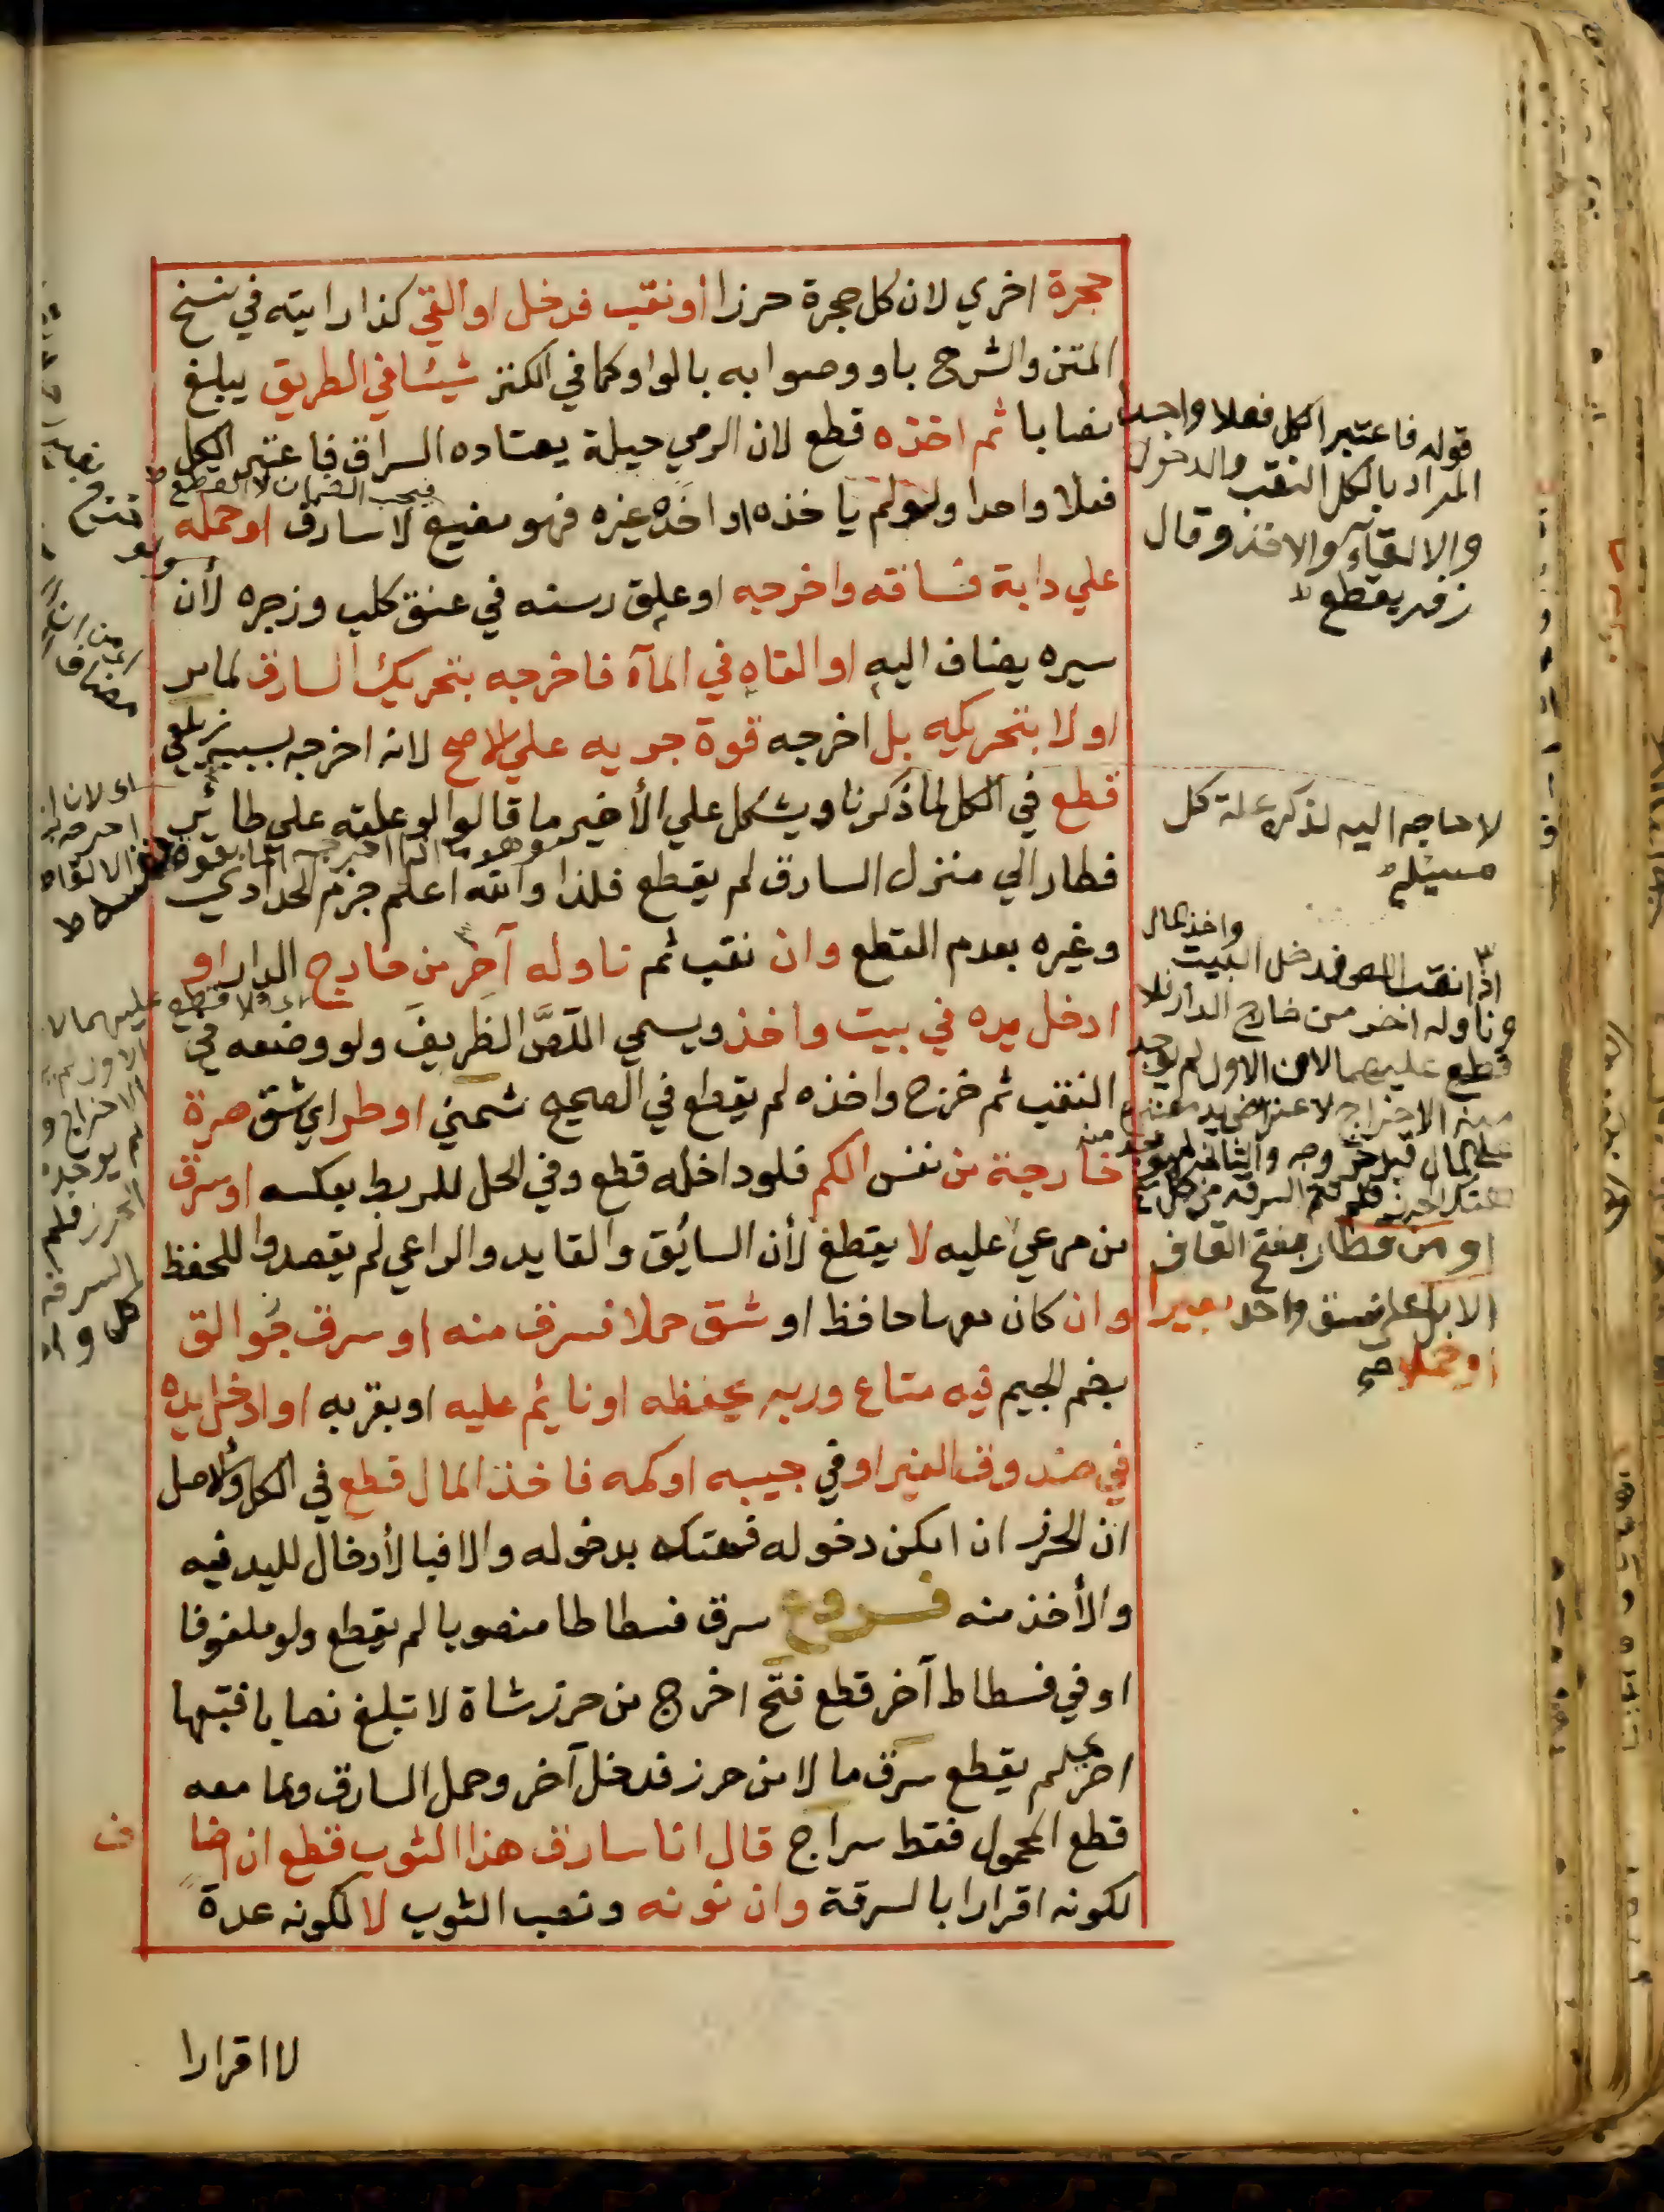 حجرة اخري لان كل حجرة حرز اونقب فدخل او القي كذا رايته في نسخ
المتن والشرح باو وصوابه بالواو كما في الكنز شيئا في الطريق يبلغ
نصابا ثم اخذه قطع لان الرمي حيلة يعتاده السراق فاعتبر الكل
فيجب الضمان لا القطع
فعلا واحدا ولو لم ياخذه او اخذه غيره فهو مضيع لا سارق او حمله
علي دابة فساقه واخرجه او علق رسنه في عنق كلب وزجره لأن
سيره يضاف اليه او القاه في المآء فاخرجه بتحريك السارق لما مر
او لا بتحريكه بل اخرجه قوة جريه علي الاصح لانه اخرجه بسببه زيلعي
قطع في الكل لما ذكرنا ويشكل علي الأخير ما قالوا لو علقه علي طائر
فطار الي منزل السارق لم يقطع فلذا والله اعلم جزم الحدادي
وغيره بعدم القطع وان نقب ثم ناوله آخر من خارج الدار او
ادخل يده في بيت واخذ ويسمي اللص الظريف ولو وضعه في
النقب ثم خرج واخذه لم يقطع في الصحيح شمني او طر اي شق صرة
خارجة من نفس الكم فلو داخله قطع وفي الحل للربط بعكسه او سرق
من مرعي عليه لا يقطع لأن السائق والقايد والراعي لم يقصدوا للحفظ
وان كان معها حافظ او شق حملا فسرق منه او سرق جوالق
بضم الجيم فيه متاع وربه يحفظه او نائم عليه او بقربه او ادخل يده
في صندوق الغير او في جيبه او كمه فاخذ المال قطع في الكل والاصل
ان الحرز ان امكن دخوله فهتكه بدخوله والا فبالأدخال لليد فيه
والأخذ منه فروع سرق فسطاطا منصوبا لم يقطع ولو ملفوفا
او في فسطاط آخر قطع فتح اخرج من حرز شاة لا تبلغ نصابا فتبعها
اخري لم يقطع سرق مالا من حرز فدخل آخر وحمل السارق وما معه
قطع المحمول فقط سراج قال انا سارق هذا الثوب قطع ان اضا
ف
لكونه اقرارا بالسرقة وان نونه ونصب الثوب لا لكونه عدة
لا اقرارا
قوله فاعتبر الكل فعلا واحدا
المراد بالكل النقب والدخول
والالقآء والاخذ وقال
زفر يقطع
لا حاجه اليه لذكره علة كل
مسيئلة
واخذ المال
اذا نقب اللص فدخل البيت
وناوله اخر من خارج الدار فلا
قطع عليهما لان الاول لم يوجد
منه الاخراج لاعتراض يد معتبرة
علي المال قبل خروجه والثاني لم يوجد منه
هتك الحرز فلم تتم السرقه من كل
او من قطار بفتح القاف
الابل علي نسق واحد بعيرا
او حملا صح